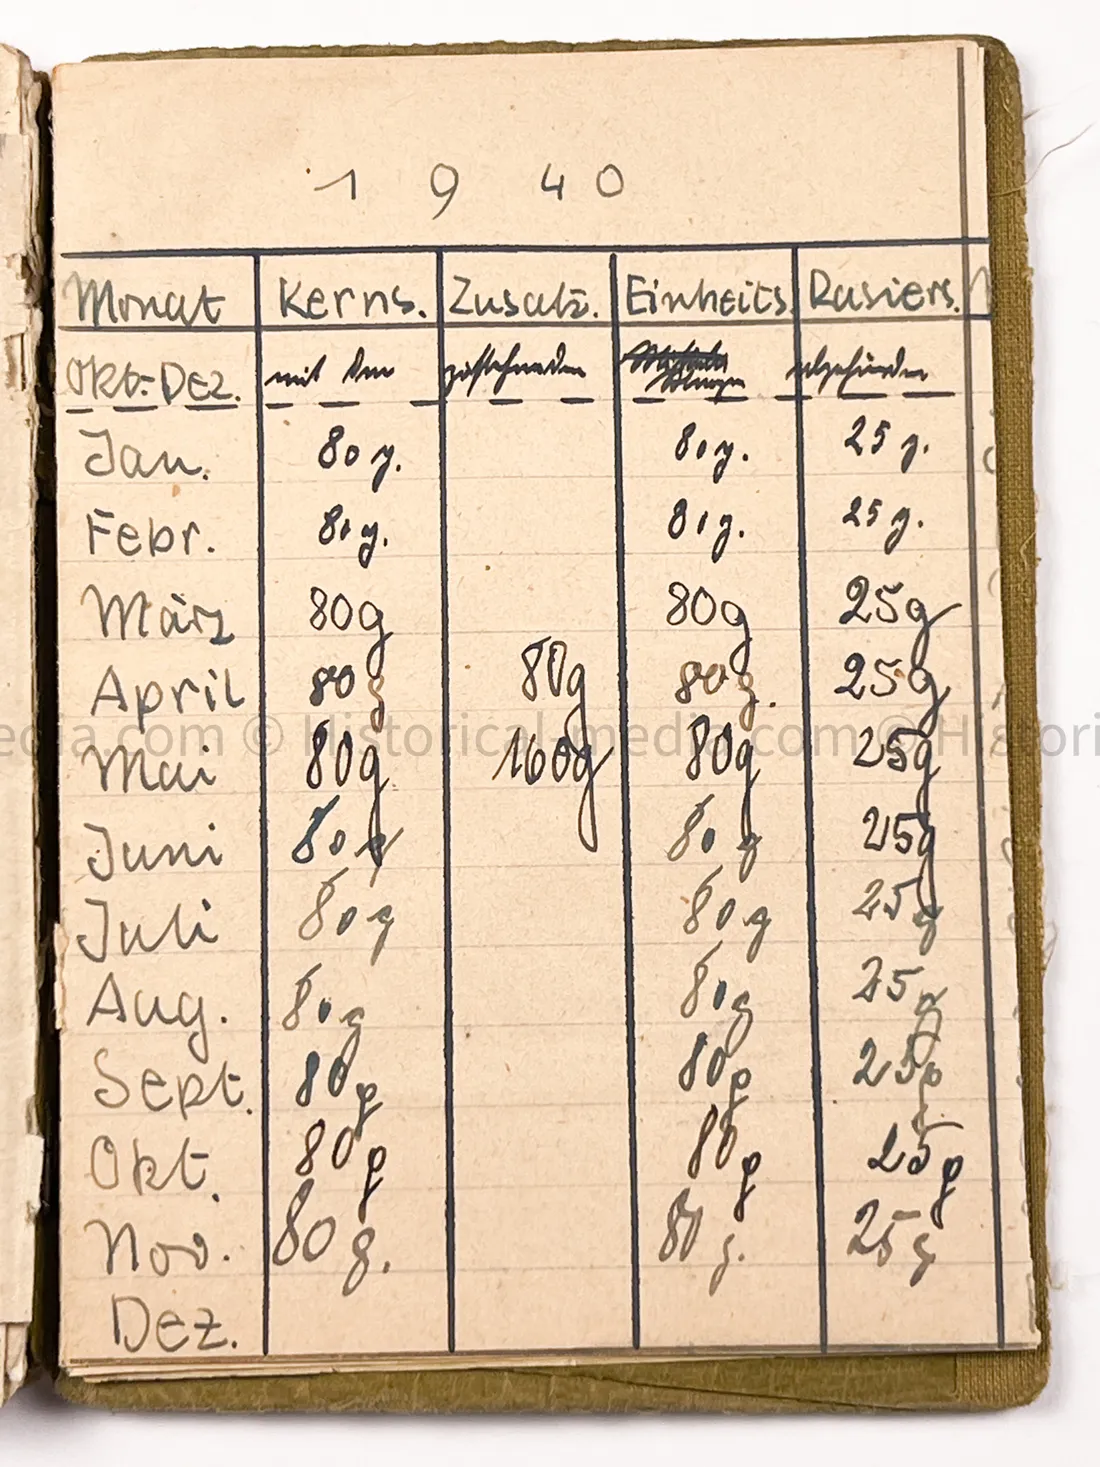 1 9 40
Monat Kerns. Zusatz. Einheits. Rasiers.
Okt.-Dez. mit den zustehenden abgefunden
Jan. 80 g. 80 g. 25 g.
Febr. 80 g. 80 g. 25 g.
März 80g 80g 25g
April 80 g 80g 80g. 25g
Mai 80g 160g 80g 25g
edia.com © Historical-media.com © Histori
Juni 80 g 80 g 25g
Juli 80 g 80 g 25g
Aug. 80 g 80g 25g
Sept. 80g 80g 25g
Okt. 80g 80g 25g
Nov. 80 g. 80 g. 25g
Dez.